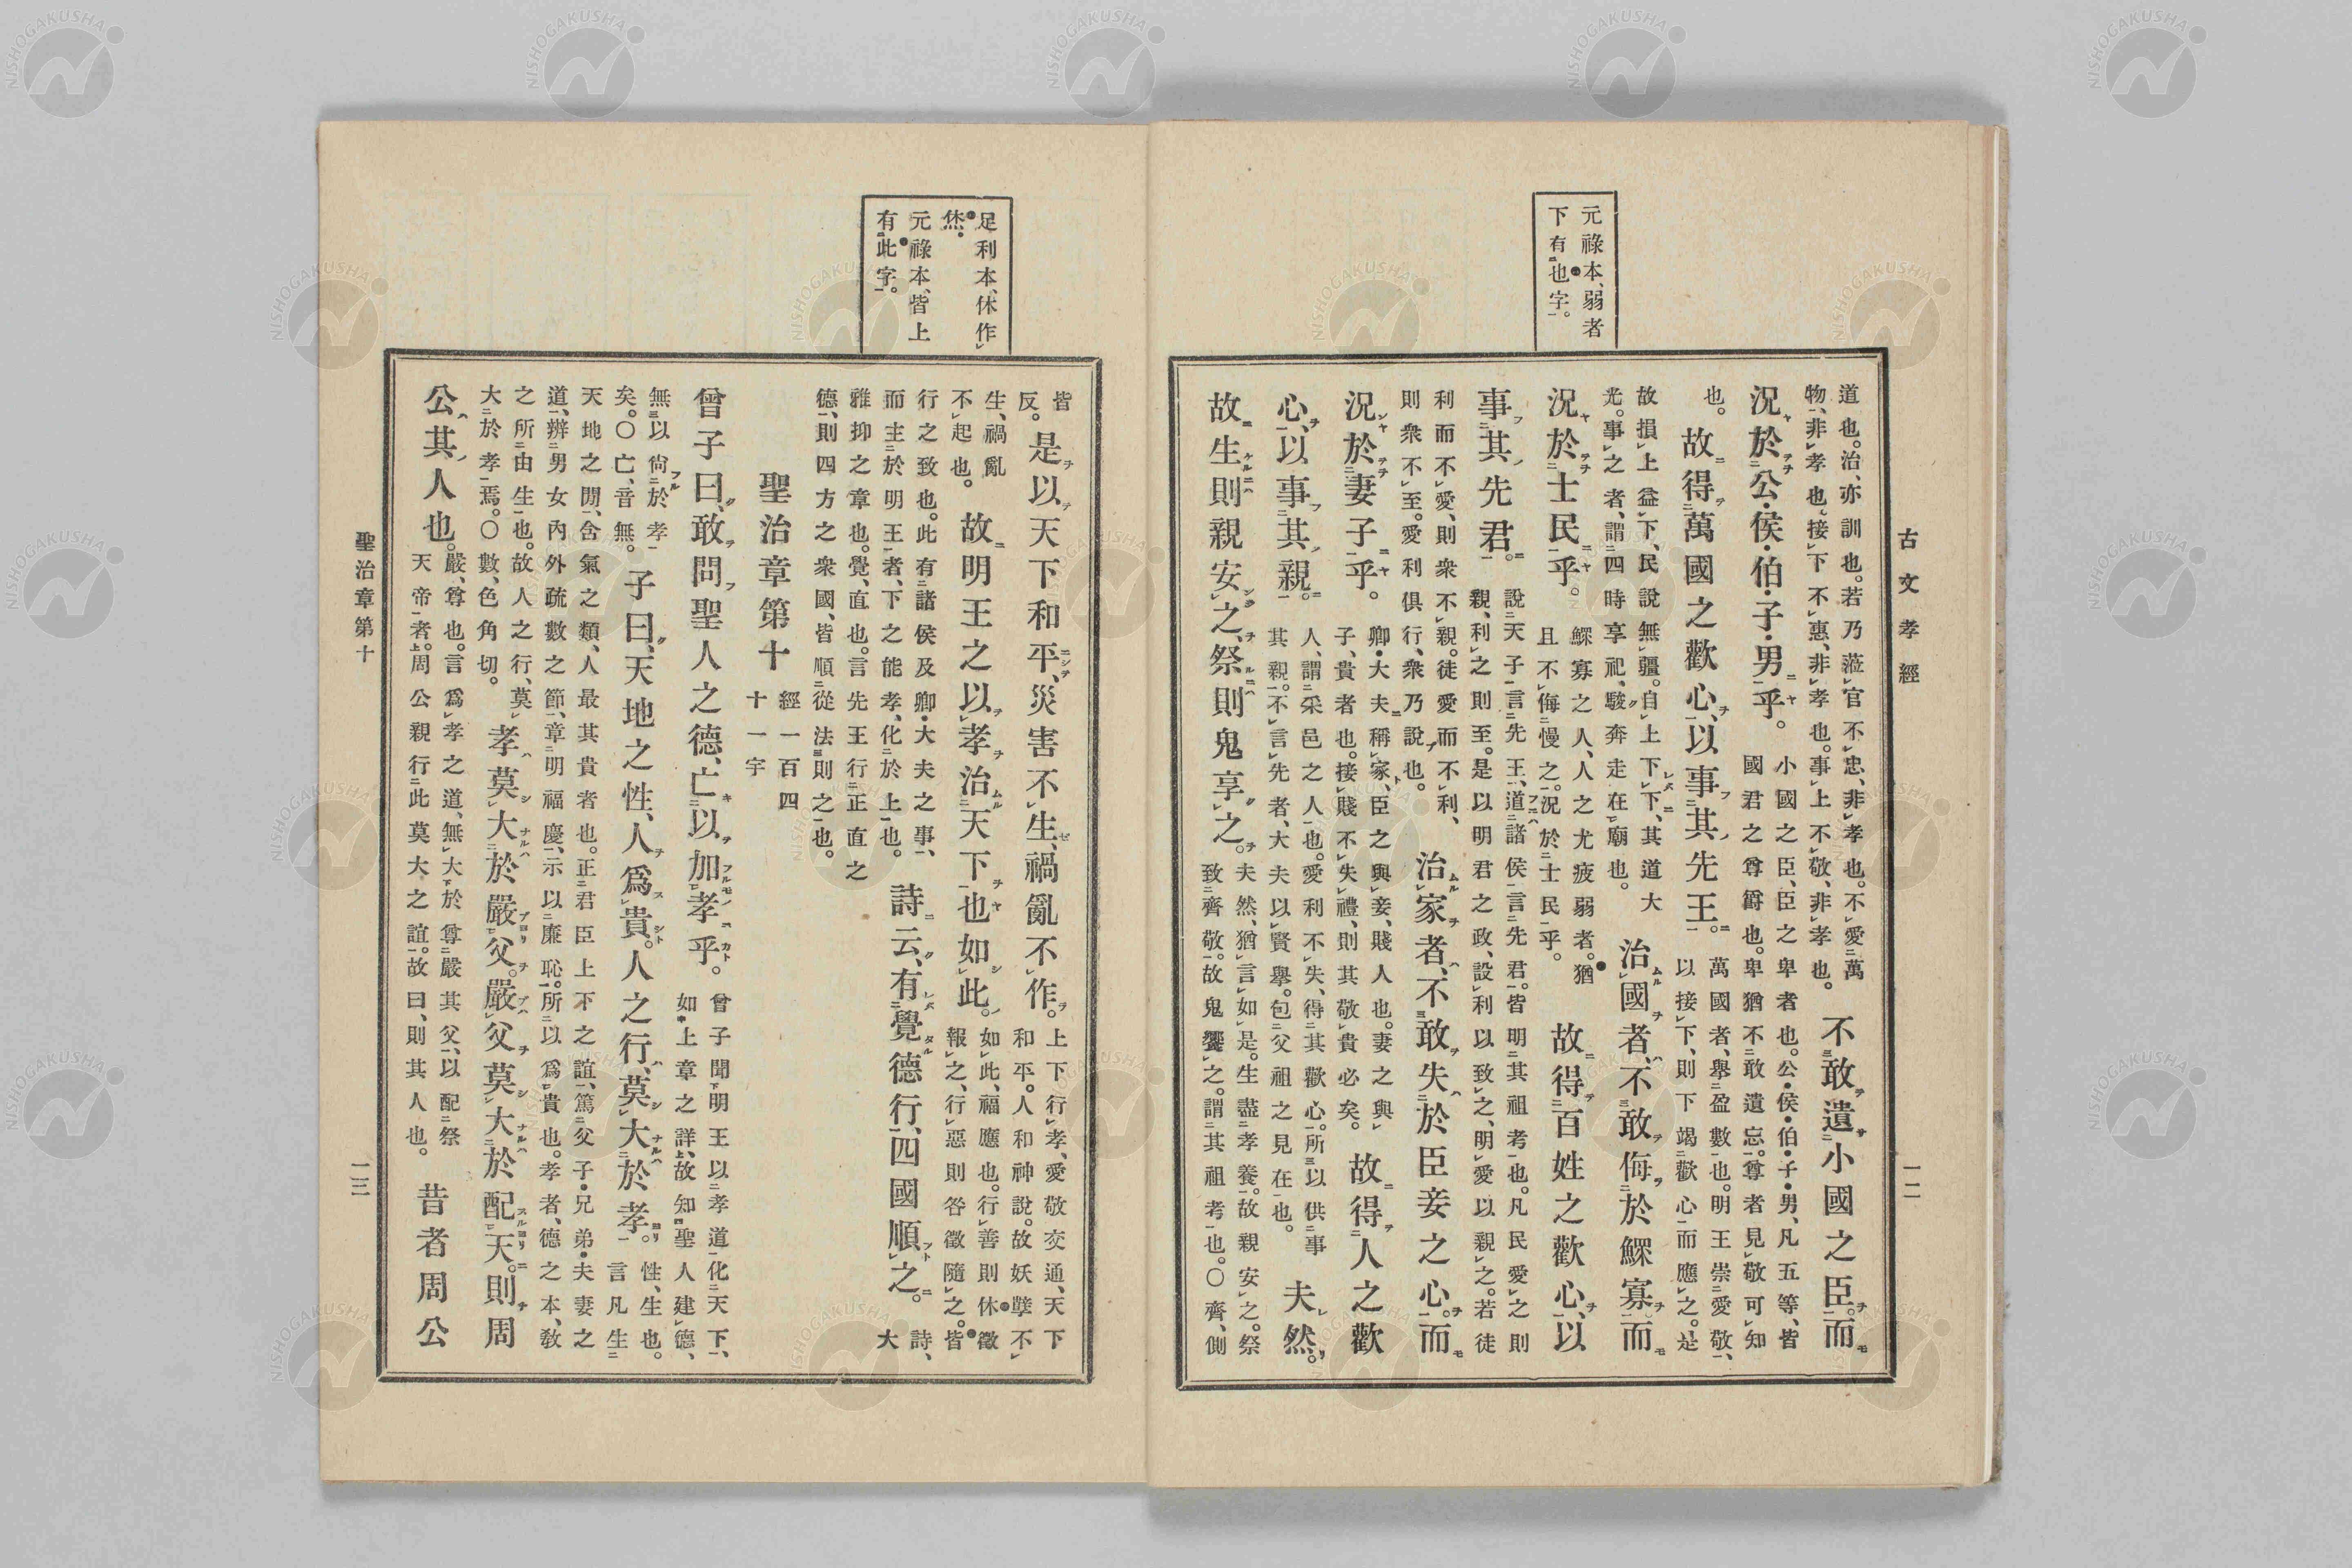 古文孝經
一二
元祿本、弱者
下有也字。
道也。治、亦訓也。若乃蒞官不忠、非孝也。不愛萬
物、非孝也。接下不惠、非孝也。事上不敬、非孝也。
不敢遺小國之臣。而
況於公・侯・伯・子・男乎。
小國之臣、臣之卑者也。公・侯・伯・子・男、凡五等、皆
國君之尊爵也。卑猶不敢遺忘。尊者見敬可知
也。
故得萬國之歡心、以事其先王。
萬國者、舉盈數也。明王崇愛敬、
以接下、則下竭歡心而應之。是
故損上益下、民說無疆。自上下下、其道大
光。事之者、謂四時享祀、駿奔走在廟也。
治國者、不敢侮於鰥寡。而
況於士民乎。
鰥寡之人、人之尤疲弱者。猶
且不侮慢之。況於士民乎。
故得百姓之歡心、以
事其先君。
說天子言先王、道諸侯言先君。皆明其祖考也。凡民愛之則
親、利之則至。是以明君之政、設利以致之、明愛以親之。若徒
利而不愛、則衆不親。徒愛而不利、
則衆不至。愛利俱行、衆乃說也。
治家者、不敢失於臣妾之心。而
況於妻子乎。
卿・大夫稱家、臣之與妾、賤人也。妻之與
子、貴者也。接賤不失禮、則其敬貴必矣。
故得人之歡
心、以事其親。
人、謂采邑之人也。愛利不失、得其歡心。所以供事
其親。不言先者、大夫以賢舉。包父祖之見在也。
夫然。
故生則親安之、祭則鬼享之。
夫然、猶言如是。生盡孝養。故親安之。祭
致齊敬。故鬼饗之。謂其祖考也。○齊、側
足利本、休作
烋。
元祿本、皆上
有此字。
皆
反。
是以天下和平、災害不生、禍亂不作。
上下行孝、愛敬交通、天下
和平。人和神說。故妖孽不
生、禍亂
不起也。
故明王之以孝治天下也如此。
如此、福應也。行善則休徵
報之、行惡則咎徵隨之。皆
行之致也。此有諸侯及卿・大夫之事、
而主於明王者、下之能孝、化於上也。
詩云、有覺德行、四國順之。
詩、大
雅抑之章也。覺、直也。言先王行正直之
德、則四方之衆國、皆順從法則之也。
聖治章第十
經一百四
十一字
曾子曰、敢問聖人之德、亡以加孝乎。
曾子聞明王以孝道化天下、
如上章之詳、故知聖人建德、
無以尙於孝
矣。○亡、音無。
子曰、天地之性、人爲貴。人之行、莫大於孝。
性、生也。
言凡生
天地之閒、含氣之類、人最其貴者也。正君臣上下之誼、篤父子・兄弟・夫妻之
道、辨男女內外疏數之節、章明福慶、示以廉恥。所以爲貴也。孝者、德之本、敎
之所由生也。故人之行、莫
大於孝焉。○數、色角切。
孝莫大於嚴父。嚴父莫大於配天。則周
公其人也。
嚴、尊也。言爲孝之道、無大於尊嚴其父、以配祭
天帝者。周公親行此莫大之誼。故曰、則其人也。
昔者周公
聖治章第十
一三